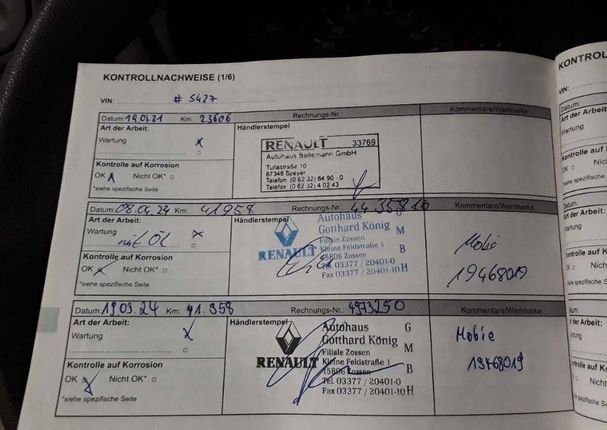 KONTROLLNACHWEISE (1/6)
VIN: # 5427
Datum: 19.01.21 Km: 23606 Rechnungs-Nr.: Kommentare/Wertmarke
Art der Arbeit: Händlerstempel
Wartung x
RENAULT 33769
Autohaus GmbH
Tullastraße 10
67346 Speyer
Telefon (0 62 32) 64 90 - 0
Telefax (0 62 32) 4 02 43
Kontrolle auf Korrosion
OK Nicht OK* □
*siehe spezifische Seite
Datum: 08.04.24 Km: 41958 Rechnungs-Nr.: Kommentare/Wertmarke
Art der Arbeit: Händlerstempel
Wartung x
mit Öl
Autohaus G
Gotthard König
Filiale Zossen M
RENAULT Kleine Feldstraße 1 B
15806 Zossen
Tel 03377 / 20401-0
Fax 03377 / 20401-10 H
Mobie
19468019
Kontrolle auf Korrosion
OK x Nicht OK* □
*siehe spezifische Seite
Datum: 19.03.24 Km: 41.958 Rechnungs-Nr.: Kommentare/Wertmarke
Art der Arbeit: Händlerstempel
Wartung x
Autohaus G
Gotthard König
Filiale Zossen M
RENAULT Kleine Feldstraße 1
15806 Zossen B
Tel 03377 / 20401-0
Fax 03377 / 20401-10 H
Mobie
19468019
Kontrolle auf Korrosion
OK x Nicht OK* □
*siehe spezifische Seite
KONTROL
VIN:
Datum:
Art der Arbeit:
Wartung
Kontrolle auf
OK □
*siehe spezifische
Datum:
Art der Arbeit
Wartung
Kontrolle auf
OK □
*siehe spezifische
Datum:
Art der Arb
Wartung
Kontrolle a
OK □
*siehe spezi